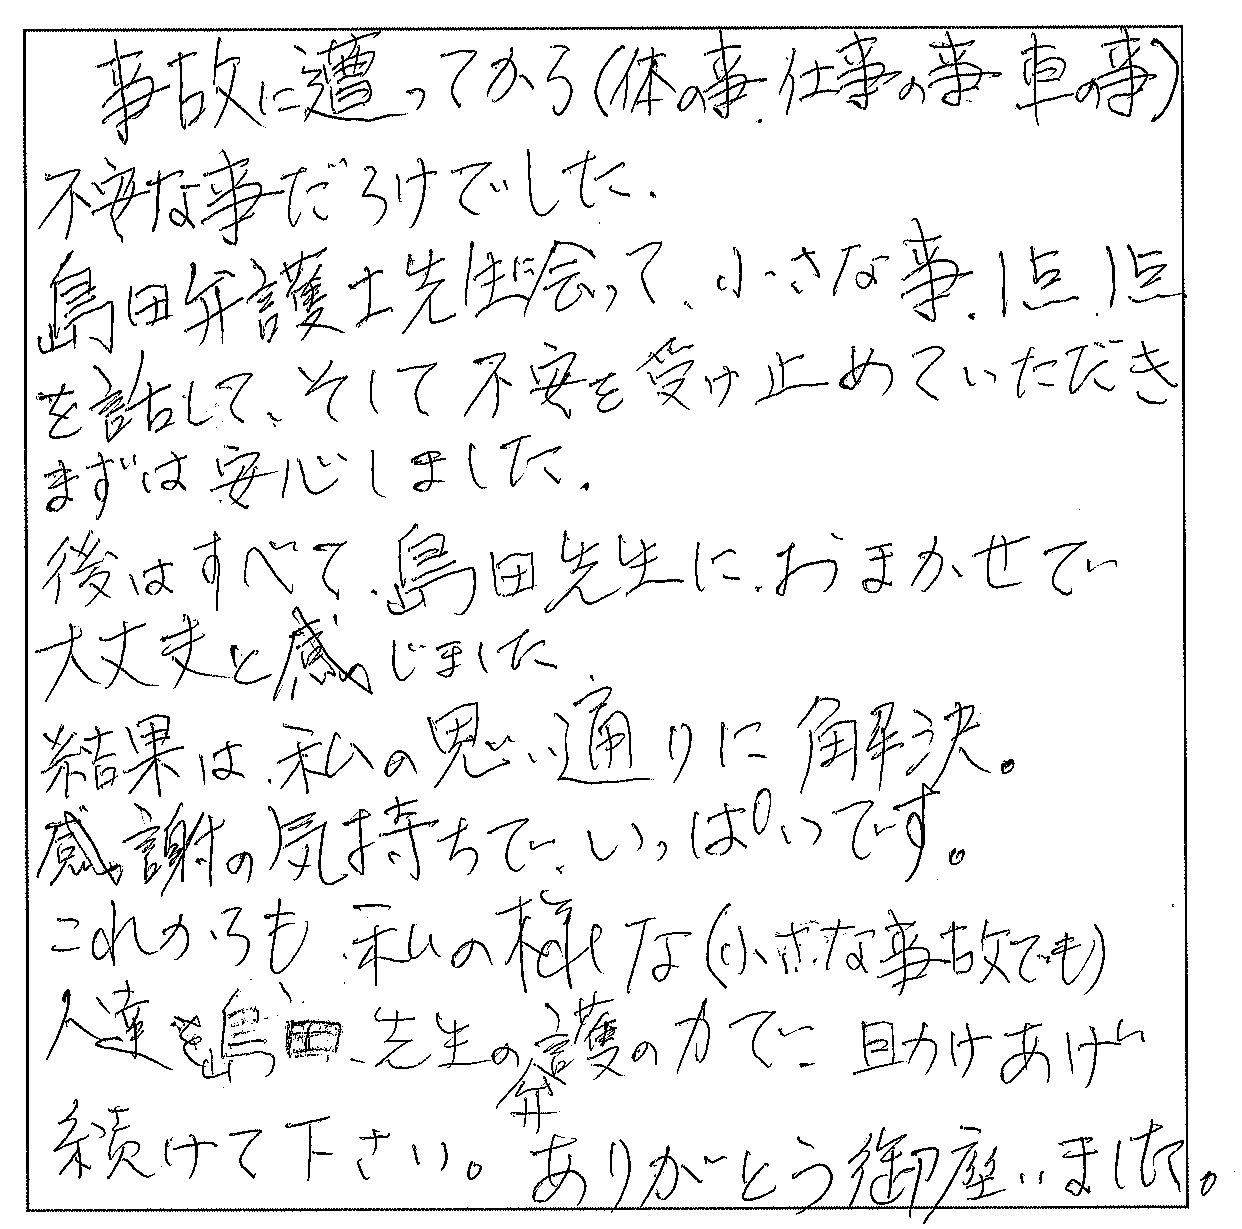 事故に遭ってから(体の事、仕事の事 車の事)
不安な事だらけでした.
島田弁護士先生に会って、小さな事、1点、1点
を話して、そして不安を受け止めていただき
まずは安心しました.
後はすべて、島田先生に、おまかせで
大丈夫と感じました
結果は、私の思い通りに解決。
感謝の気持ちで、いっぱいです。
これからも、私の様な(小さな事故でも)
人達を島田、先生の弁護の力で 助けあげ
続けて下さい。ありがとう御座いました。